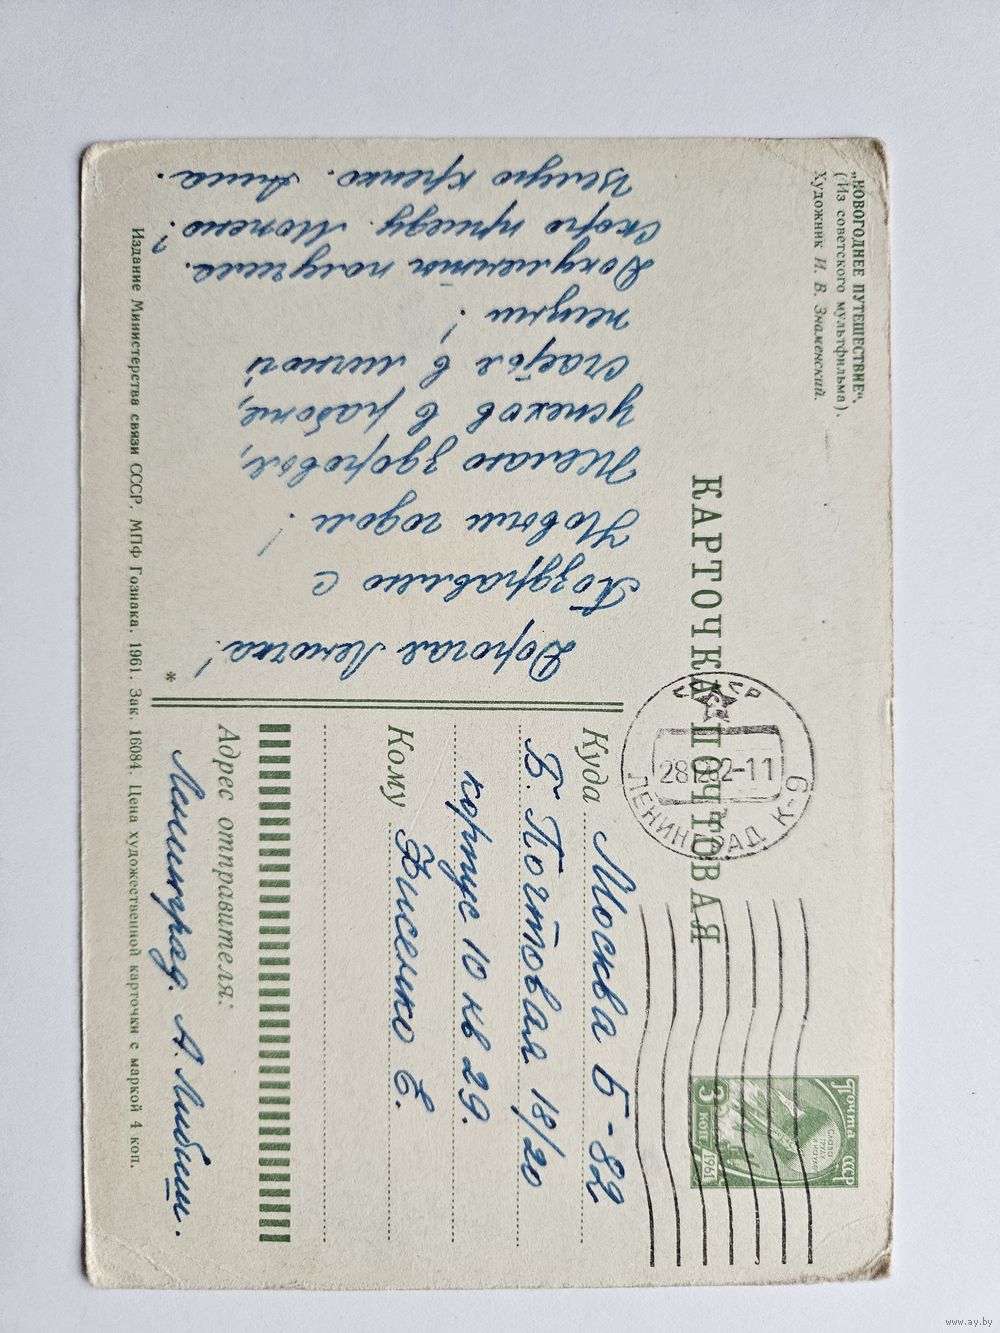 „НОВОГОДНЕЕ ПУТЕШЕСТВИЕ“.
(Из советского мультфильма).
Художник И. В. Знаменский.
КАРТОЧКА ПОЧТОВАЯ
Почта СССР
СЛАВА
ТРУДУ
И НАУКЕ
3 КОП
1961
СССР
281262-11
ЛЕНИНГРАД К-9
Дорогая Леночка!
Поздравляю с
Новым годом!
Желаю здоровья,
успехов в работе,
счастья в личной
жизни!
Документы получила.
Скоро приеду. Можно?
Целую крепко. Анна.
Куда Москва Б-82
Б. Почтовая 18/20
корпус 10 кв 29.
Кому Фисенко Е.
Адрес отправителя:
Ленинград. А.
*
Издание Министерства связи СССР. МПФ Гознака. 1961. Зак. 16084. Цена художественной карточки с маркой 4 коп.
www.ay.by